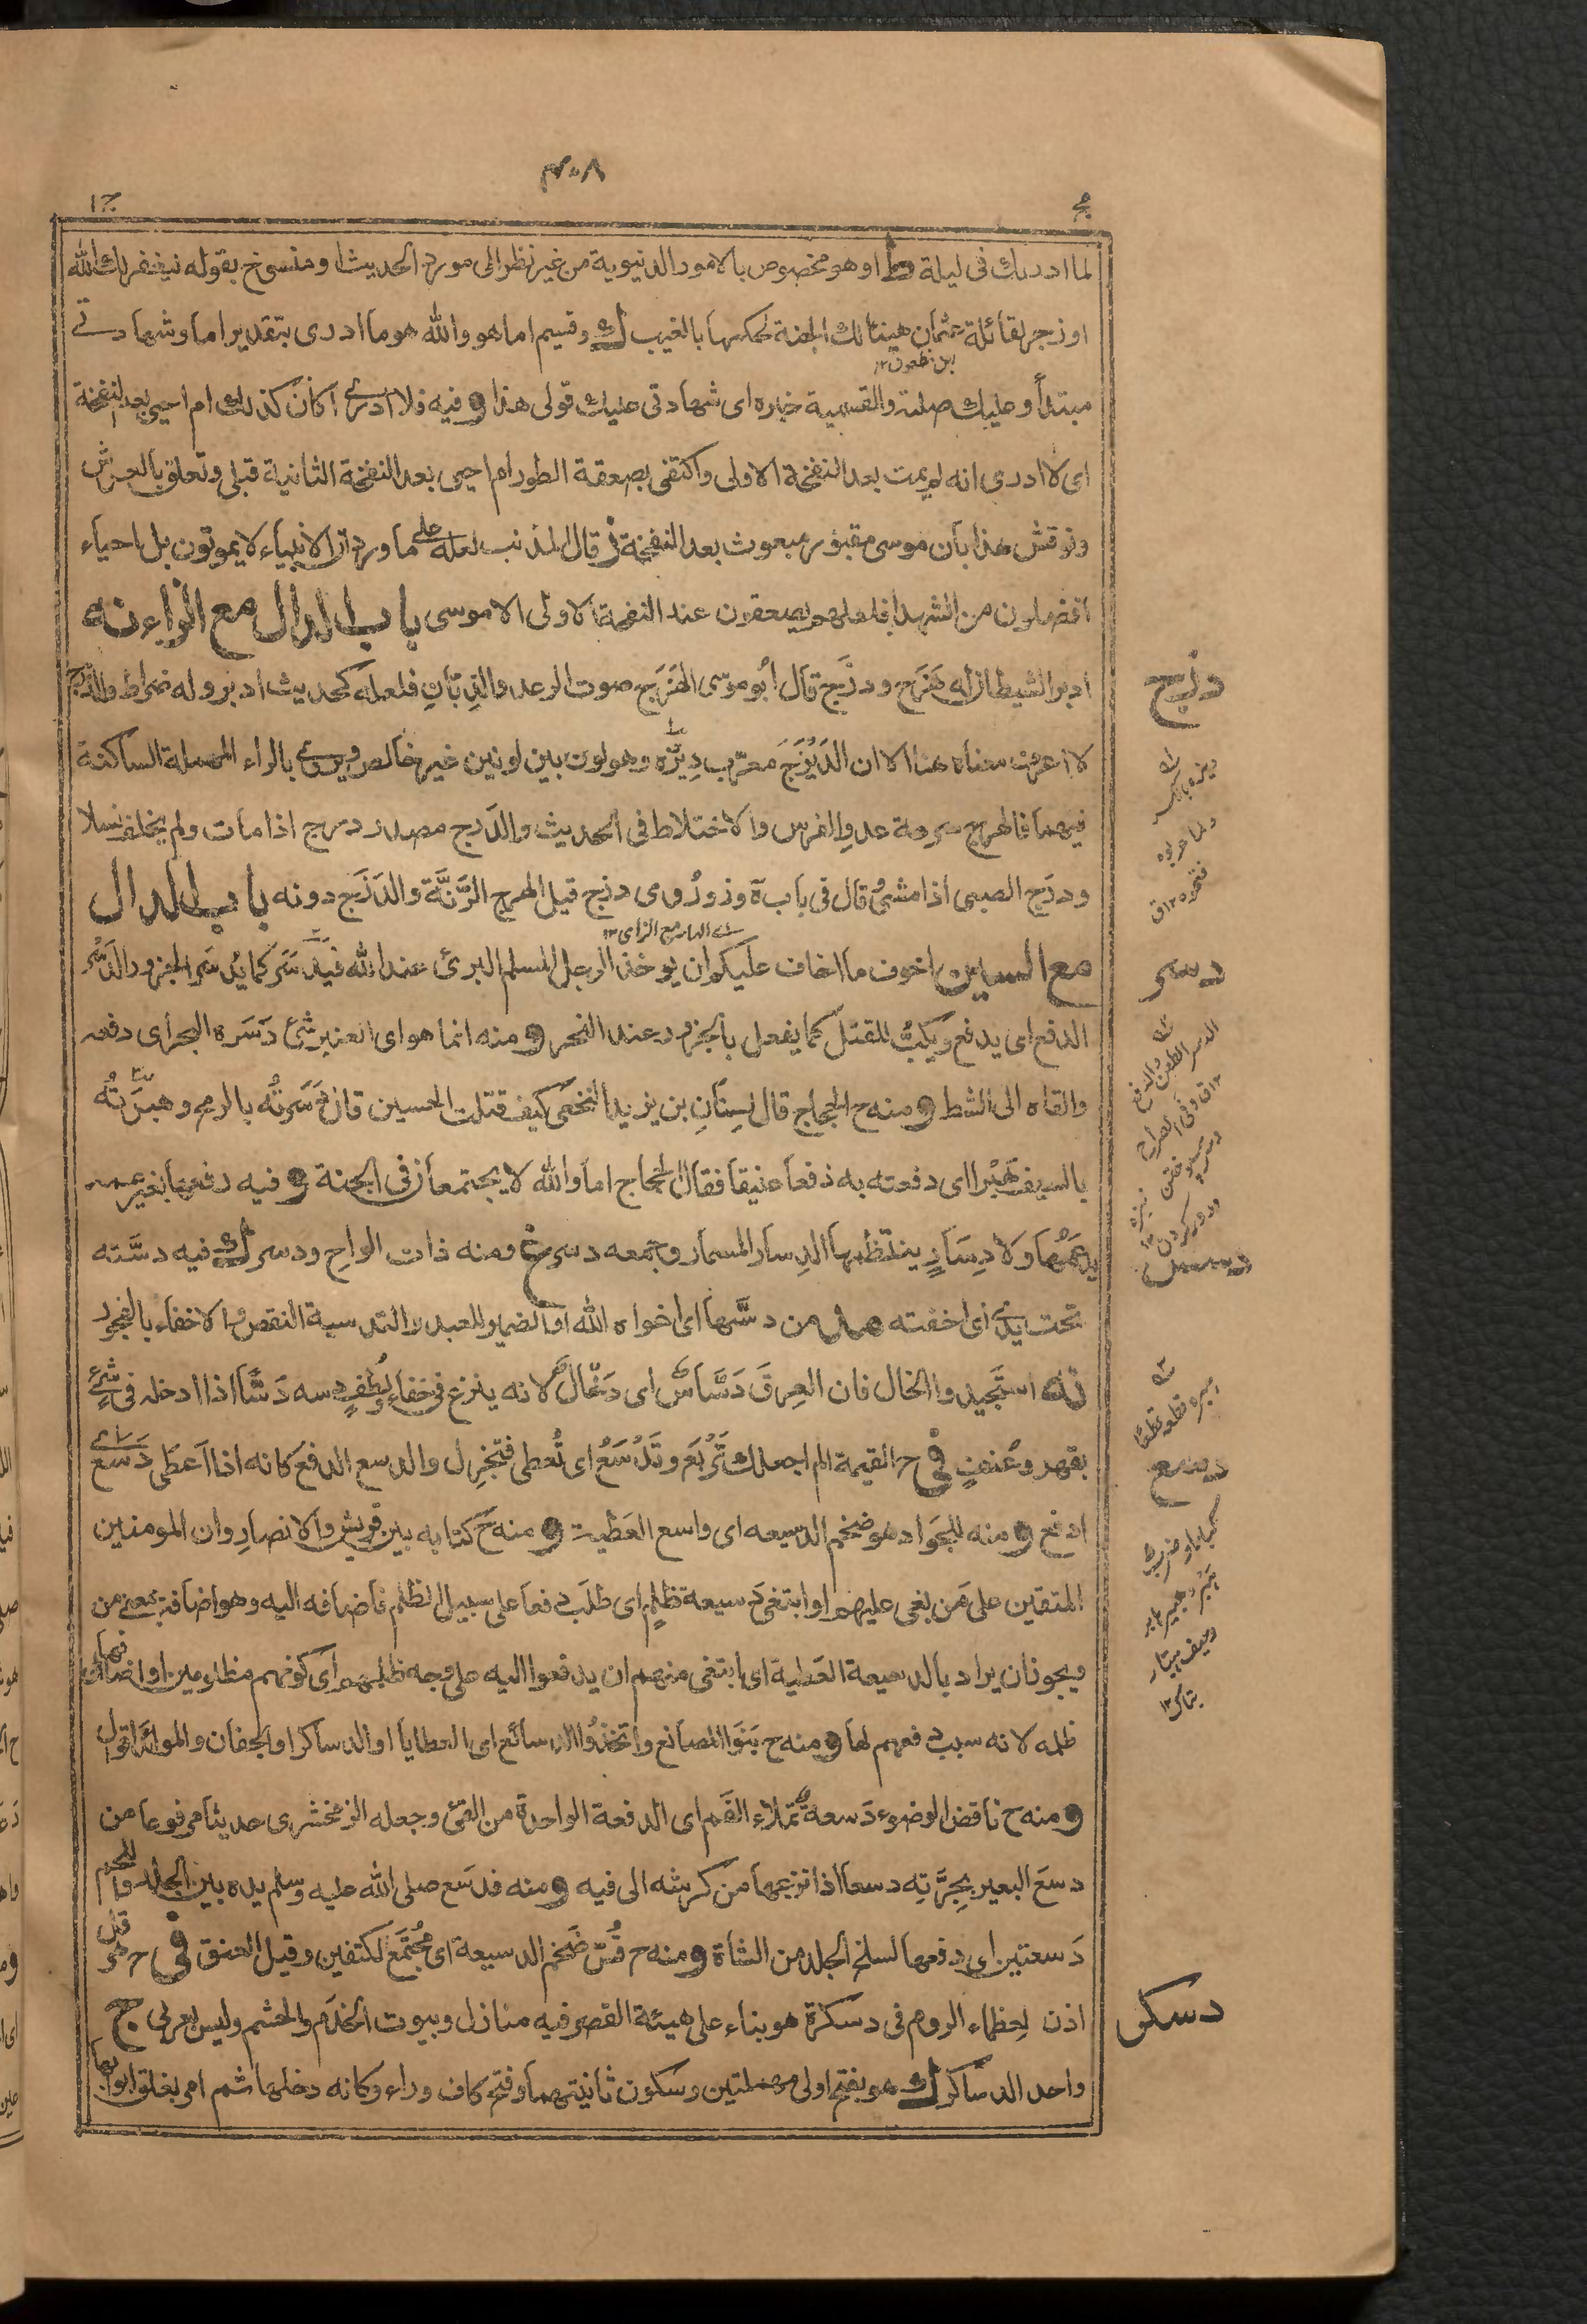 ٤٠٨
مج
ج١
لما ادريك فى ليلة ط او هو مخصوص بالامور الدنيوية من غير نظر الى مورد الحديث او منسوخ بقوله ليغفر لك الله
او زجر لقائلة عثمان هنيئا لك الجنة لحكمها بالغيب ك وقسيم اما هو والله هو ما ادرى بتقدير اما وشهادتى
بن مظعون ١٢
مبتدأ وعليك صلته والقسمية خبره اى شهادتى عليك قولى هذا و فيه فلا ادرى اكان كذلك ام احيى بعد النفخة
اى لا ادرى انه لم يمت بعد النفخة الاولى واكتفى بصعقة الطور ام احيى بعد النفخة الثانية قبلى وتعلق بالعرش
ونوقش هذا بان موسى مقبور مبعوث بعد النفخة قال المذنب لعله على ما ورد ان الانبياء لا يموتون بل احياء
افضلون من الشهداء فلعلهم يصعقون عند النفخة الاولى الا موسى باب الدال مع الزاء نه
ادبر الشيطان له هَزَج ودَزَج قال ابو موسى الهَزَج صوت الرعد والذِبّانِ فلعله كحديث ادبر وله ضراط والدزج
لا اعرف معناه هنا الا ان الدَيْزَجَ معرّب دِيزَه وهو لون بين لونين غير خالص ويروى بالراء المهملة الساكنة
فيهما فالهرج سرعة عدو الفرس والاختلاط فى الحديث والدَرج مصدر درج اذا مات ولم يخلف نسلا
ودرَج الصبى اذا مشىٰ قال فى باب ه وز ورُوى دزج قيل الهزج الرَنّة والدَزَج دونه باب الدال
اى الدال مع الزاى ١٢
مع السين اخوف ما اخاف عليكم ان يوخذ الرجل المسلم البرئ عند الله فيُدسَر كما يُدسَر الجزور الدَسْر
الدفع اى يدفع ويَكبُّ للقتل كما يفعل بالجزور عند النحر و منه انما هو اى العنبر شئ دَسَره البحر اى دفعه
والقاه الى الشط و منه ح الحجاج قال لِسِنَانِ بن يزيد النخعى كيف قتلت الحسين قال دَسَرتُه بالرمح وهبَرْتُه
بالسيف هَبْرا اى دفعته به دفعا عنيفا فقال الحجاج اما والله لا يجتمعان فى الجنة و فيه رفعها بغير عمد
يدعَمُها ولا دِسَارٍ ينتظمها الدِسار المسمار وجمعه دسر غ ومنه ذات الواح ودسر ك فيه دسَّته
تحت يدى اى اخفته مد من دسّٰها اى اخواه الله او الضمير للعبد والتدسية النقص والاخفاء بالفجور
نه استجيدوا الخال فان العِرقَ دَسَّاسٌ اى دَخّال لانه ينزع فى خفاء ولُطفٍ دسه دَسًّا اذا ادخله فى شئ
بقهر وعُنفٍ فى ح القيمة الم اجعلك تَرْبَعُ وتَدْسَعُ اى تُعطى فتُجزِل والدسع الدفع كانه اذا اَعطى دَسَعَ اى
ادفع و منه للجَواد هو ضخم الدسيعه اى واسع العَطية و منه ح كتابه بين قريش والانصارِ وان المومنين
المتقين على مَن بغى عليهم او ابتغى دَسيعة ظلمٍ اى طلَب دفعا على سبيل الظلم فاضافه اليه وهو اضافة بمعنى من
ويجوز ان يراد بالدسيعة العَطية اى ابتغى منهم ان يدفعوا اليه على وجه ظلمهم اى كونهم مظلومين او اضافها الى
ظلمه لانه سبب دفعهم لها و منه ح بَنَوا المصانع واتخذُوا الدسائع اى العطايا او الدساكر او الجفان والموائد اقوال
و منه ح ناقض الوضوء دَسعةٌ تملاء الفَم اى الدفعة الواحدة من القئ وجعله الزمخشرى حديثا مرفوعا من
دسعَ البعير بجِرَّتِه دسعا اذا نزعها من كرشه الى فيه و منه فدسَع صلى الله عليه وسلم يده بين الجلد واللحم
دَسعتين اى دفعها لسلخ الجلد من الشاة و منه ح قُسّ ضخم الدسيعة اى مُجتمَع الكتفين وقيل العنق فى ح هرقل
اذن لعظماء الروم فى دسكرة هو بناء على هيئة القصر فيه منازل وبيوت الخدَم والحشم وليس بعربى ج
واحد الدساكر ك هو بفتح اولى مهملتين وسكون ثانيتهما وفتح كاف وراء وكانه دخلها ثم امر بغلق ابوابها
دزج
ديزه بالكسر
دسر
الدسر الطعن والدفع
دسس
ودور كردن
هبره قطعه قطعًا
دسع
دسكر